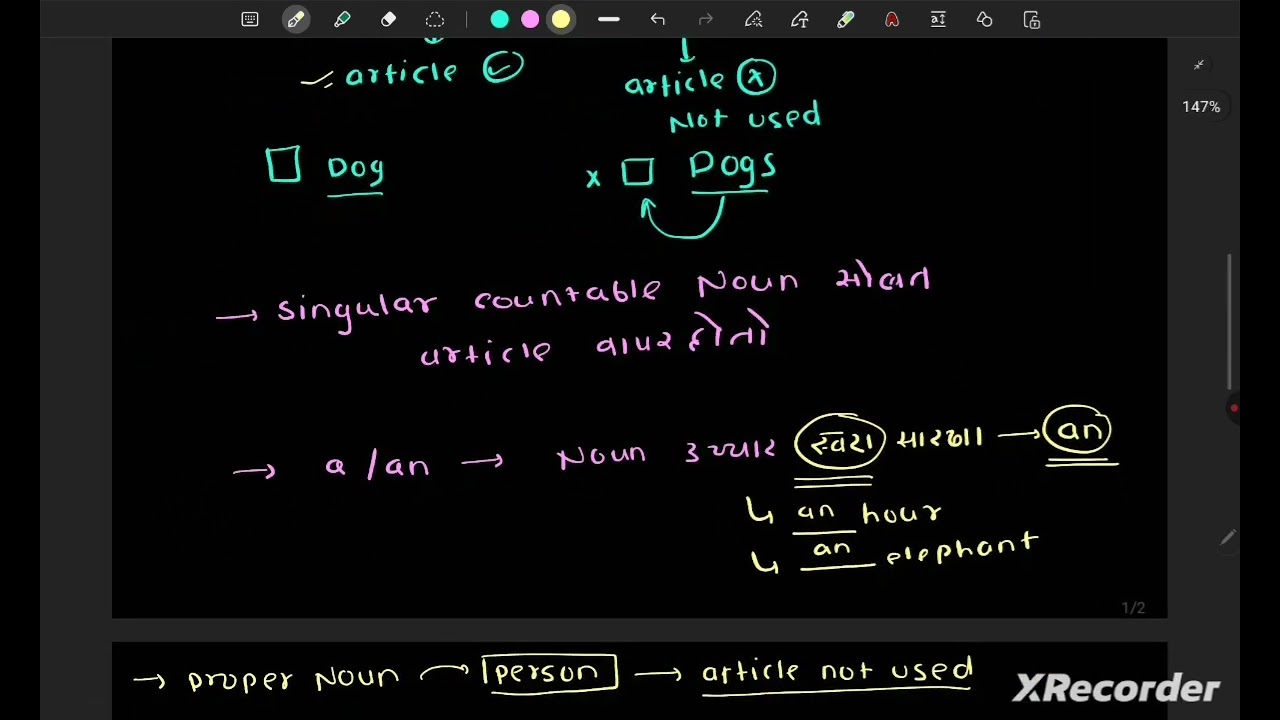 147%
article
article x
Not used
Dog
x Dogs
→ singular countable Noun સોવત
article વાપર હોતો
→ a/an → Noun ઉચ્ચાર સ્વરો સારખા → an
↳ an hour
↳ an elephant
1/2
→ proper Noun → person → article not used
XRecorder